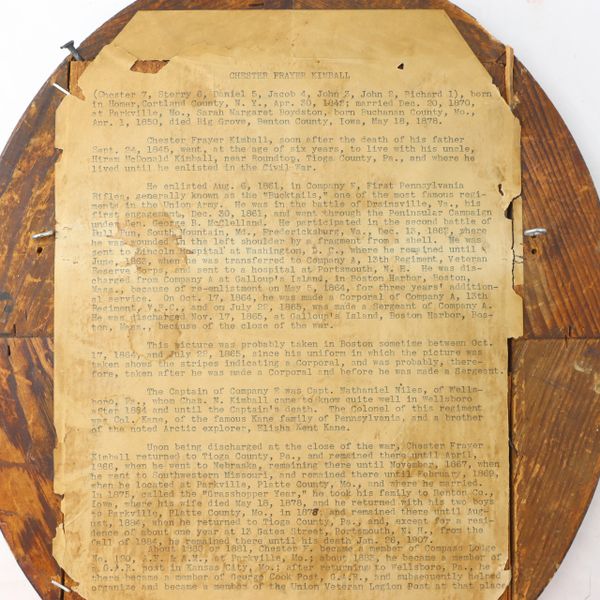 CHESTER FRAYER KIMBALL
(Chester 7, Sterry 6, Daniel 5, Jacob 4, John 3, John 2, Richard 1), born
in Homer, Cortland County, N. Y., Apr. 30, ; married Dec. 20, 1870,
at Parkville, Mo., Sarah Margaret Boydston, born Buchanan County, Mo.,
Apr. 1, 1850, died Big Grove, Benton County, Iowa, May 18, 1878.
Chester Frayer Kimball, soon after the death of his father
Sept. 24, 1845, went, at the age of six years, to live with his uncle,
Hiram McDonald Kimball, near Roundtop, Tioga County, Pa., and where he
lived until he enlisted in the Civil War.
He enlisted Aug. 6, 1861, in Company E, First Pennsylvania
Rifles, generally known as the "Bucktails," one of the most famous regi-
ments in the Union Army. He was in the battle of Drainsville, Va., his
first engagement, Dec. 30, 1861, and went through the Peninsular Campaign
under Gen. George B. McClelland. He participated in the second battle of
Bull Run, South Mountain, Md., Fredericksburg, Va., Dec. 13, 1862, where
he was wounded in the left shoulder by a fragment from a shell. He was
sent to Lincoln Hospital at Washington, D. C., where he remained until
June, 1863, when he was transferred to Company A, 13th Regiment, Veteran
Reserve Corps, and sent to a hospital at Portsmouth, N. H. He was dis-
charged from Company A at Galloup's Island, in Boston Harbor, Boston,
Mass., because of re-enlistment on May 6, 1864, for three years' addition-
al service. On Oct. 17, 1864, he was made a Corporal of Company A, 13th
Regiment, V.R.C., and on July 22, 1865, was made a Sergeant of Company A.
He was discharged Nov. 17, 1865, at Galloup's Island, Boston Harbor, Bos-
ton, Mass., because of the close of the war.
This picture was probably taken in Boston sometime between Oct.
17, 1864, and July 22, 1865, since his uniform in which the picture was
taken shows the stripes indicating a Corporal, and was probably, there-
fore, taken after he was made a Corporal and before he was made a Sergeant.
The Captain of Company E was Capt. Nathaniel Niles, of Wells-
boro, Pa., whom Chas. N. Kimball came to know quite well in Wellsboro
after 1884 and until the Captain's death. The Colonel of this regiment
was Col. Kane, of the famous Kane family of Pennsylvania, and a brother
of the noted Arctic explorer, Elisha Kent Kane.
Upon being discharged at the close of the war, Chester Frayer
Kimball returned to Tioga County, Pa., and remained there until April,
1866, when he went to Nebraska, remaining there until November, 1867, when
he went to Southwestern Missouri, and remained there until February, 1869,
when he located at Parkville, Platte County, Mo., and where he married.
In 1875, called the "Grasshopper Year," he took his family to Benton Co.,
Iowa, where his wife died May 18, 1878, and he returned with his two boys
to Parkville, Platte County, Mo., in 1878 and remained there until Aug-
ust, 1884, when he returned to Tioga County, Pa., and, except for a resi-
dence of about one year at 13 Gates Street, Portsmouth, N. H., from the
fall of 1884, he remained there until his death Jan. 26, 1907.
About 1880 or 1881, Chester F. became a member of Compass Lodge
No. 120, A.F. & A.M., at Parkville, Mo.; about 1883, he became a member of
a G.A.R. post in Kansas City, Mo.; after returning to Wellsboro, Pa., he
there became a member of George Cook Post, G.A.R., and subsequently helped
organize and became a member of the Union Veteran Legion Post at that place